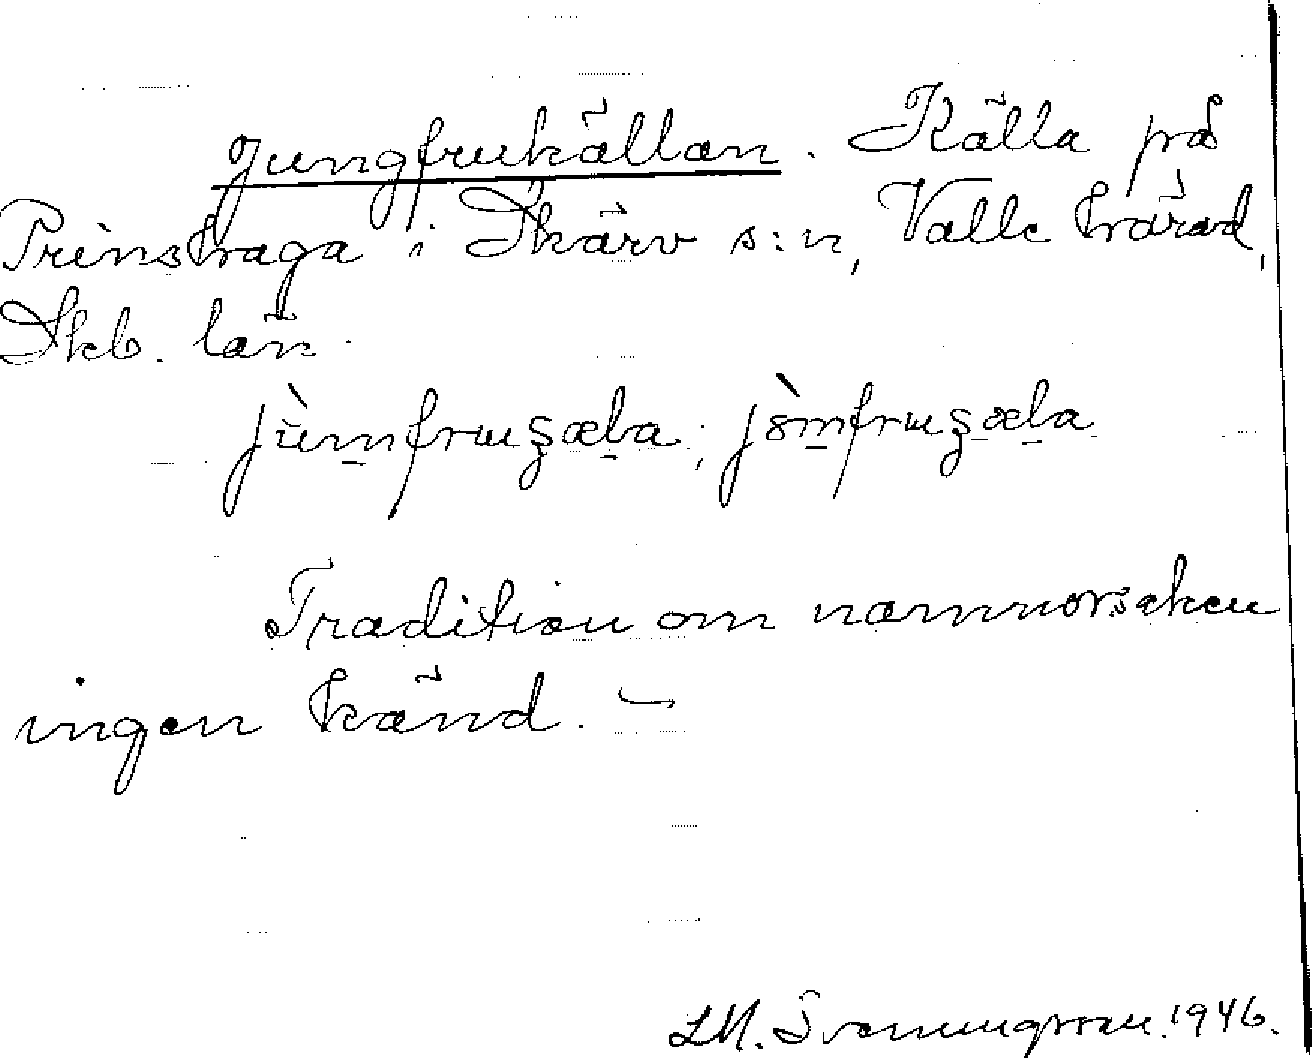 Jungfrukällan. Källa på
Prinshaga i Skärv s:n, Valle härad,
Skb. län.
jùmfruʂæla; jòmfruʂæla
Tradition om namnorsaken
ingen känd. –
L.M. Svenungsson. 1946.